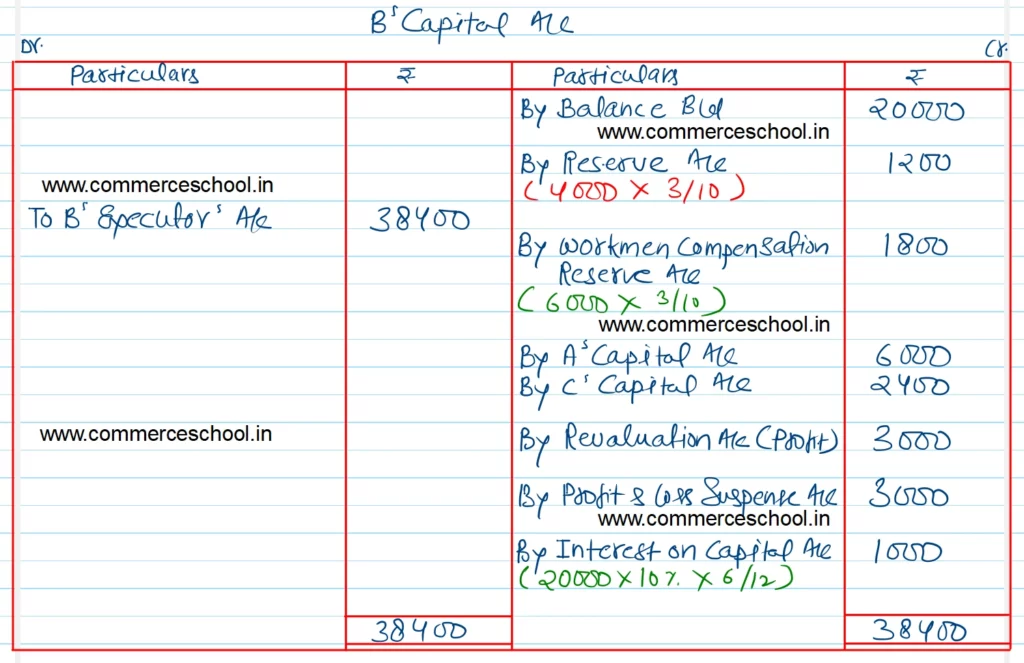 B's Capital A/c
Dr.
Cr.
Particulars ₹ Particulars ₹
By Balance B/d 20000
www.commerceschool.in
By Reserve A/c 1200
www.commerceschool.in
(4000 × 3/10)
To B's Executor's A/c 38400
By Workmen Compensation 1800
Reserve A/c
(6000 × 3/10)
www.commerceschool.in
By A's Capital A/c 6000
By C's Capital A/c 2400
www.commerceschool.in
By Revaluation A/c (Profit) 3000
By Profit & Loss Suspense A/c 3000
www.commerceschool.in
By Interest on Capital A/c 1000
(20000 × 10% × 6/12)
38400 38400